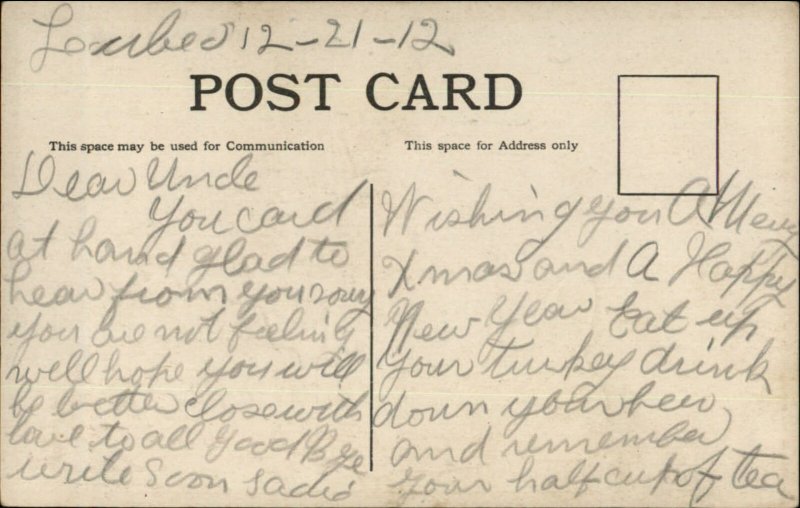 12-21-12
POST CARD
This space may be used for Communication
Dear Uncle
You card
at hand glad to
hear from you sorry
you are not feeling
well hope you will
be better close with
love to all Good Bye
write Soon Sadie
This space for Address only
Wishing you A Merry
Xmas and A Happy
New Year Eat up
your turkey drink
down your beer,
and remember
your half cup of tea